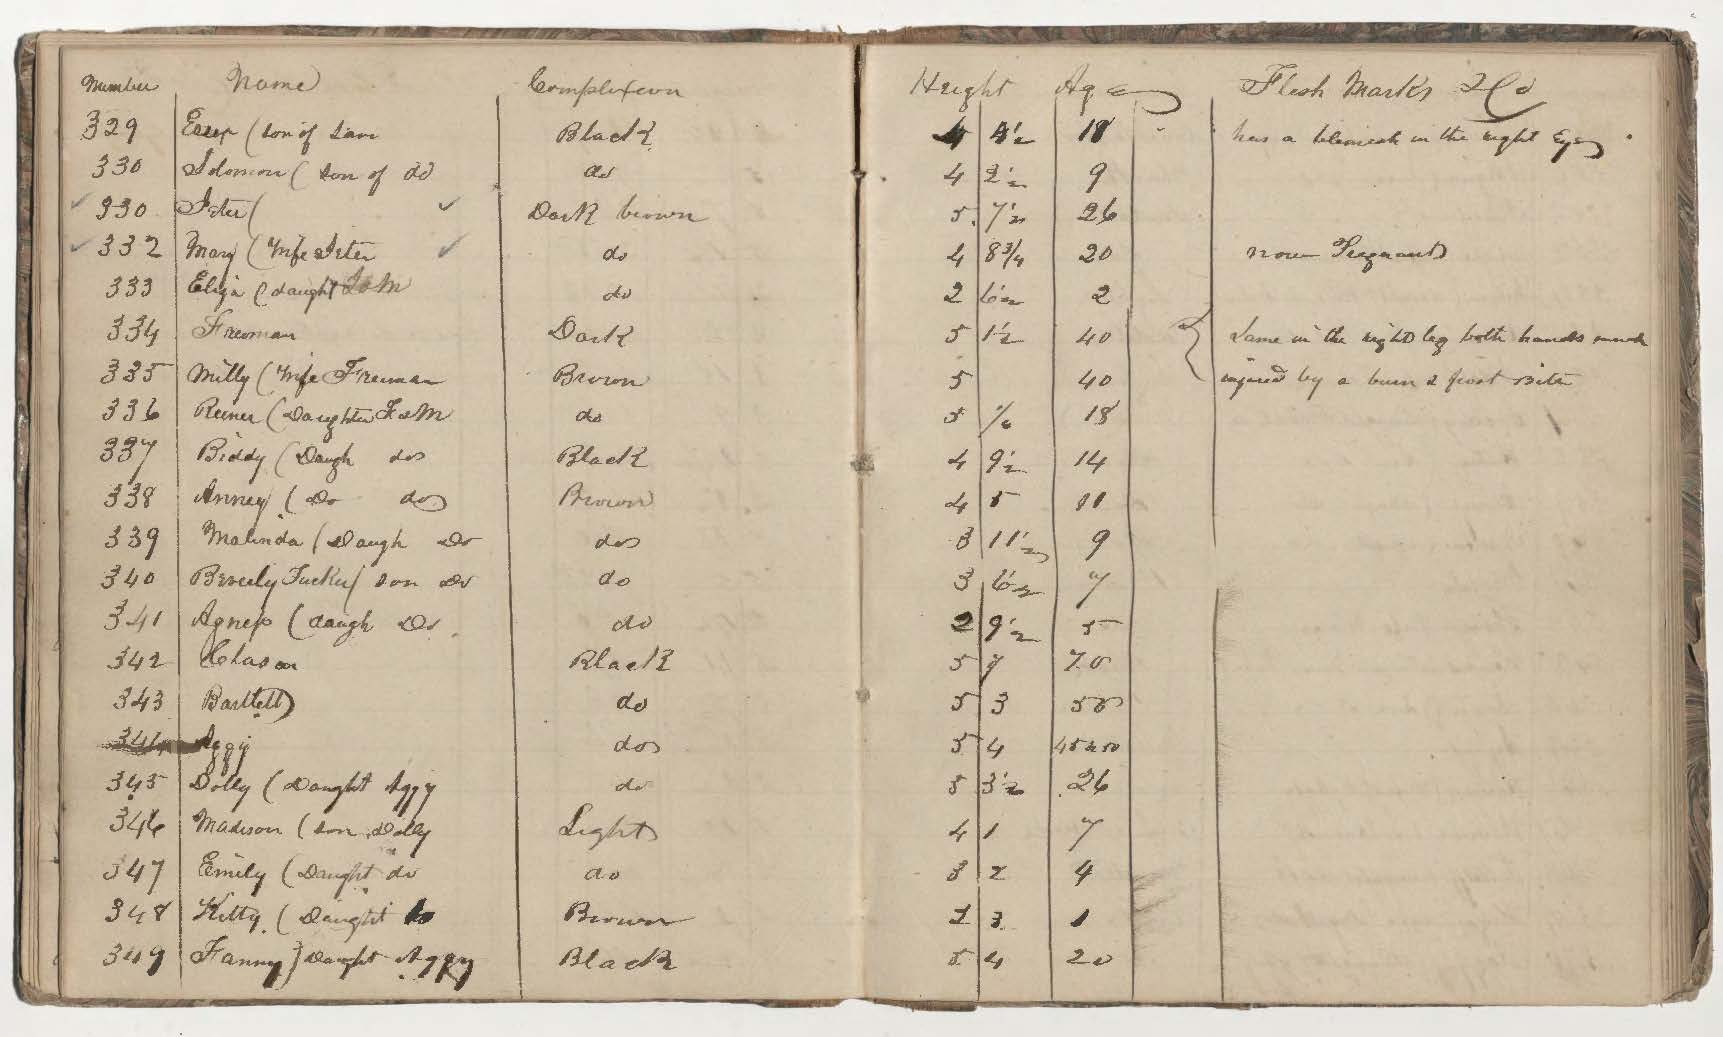 Number Name Complexion Height Age Flesh Marks &Co
329 Essex (son of Sam Black 4 4½ 18 has a blemish in the right Eye
330 Solomon ( son of do do 4 2½ 9
330 Peter ( Dark brown 5 7½ 26
332 Mary ( Wife Peter do 4 8¾ 20 now Pregnant
333 Eliza ( daught P & M do 2 6½ 2
334 Freeman Dark 5 1½ 40 Lame in the right leg both hands much
335 Milly ( Wife Freeman Brown 5 40 injured by a burn & frost Bite
336 (Daughter F & M do 5 18
337 Biddy ( Daugh do Black 4 9½ 14
338 Anney ( Do do Brown 4 5 11
339 Malinda ( Daugh Do do 3 11½ 9
340 Beverly Tucker ( son Do do 3 6½ 7
341 Agness ( daugh Do do 2 9½ 5
342 Black 5 7 70
343 Bartlett do 5 3 50
344 Aggy do 5 4 45 a 50
345 Dolly ( Daught Aggy do 5 3½ 26
346 Madison ( son Dolly Light 4 1 7
347 Emily ( Daught do do 3 2 4
348 Kitty ( Daught do Brown 2 3 1
349 Fanny } Daught Aggy Black 5 4 20